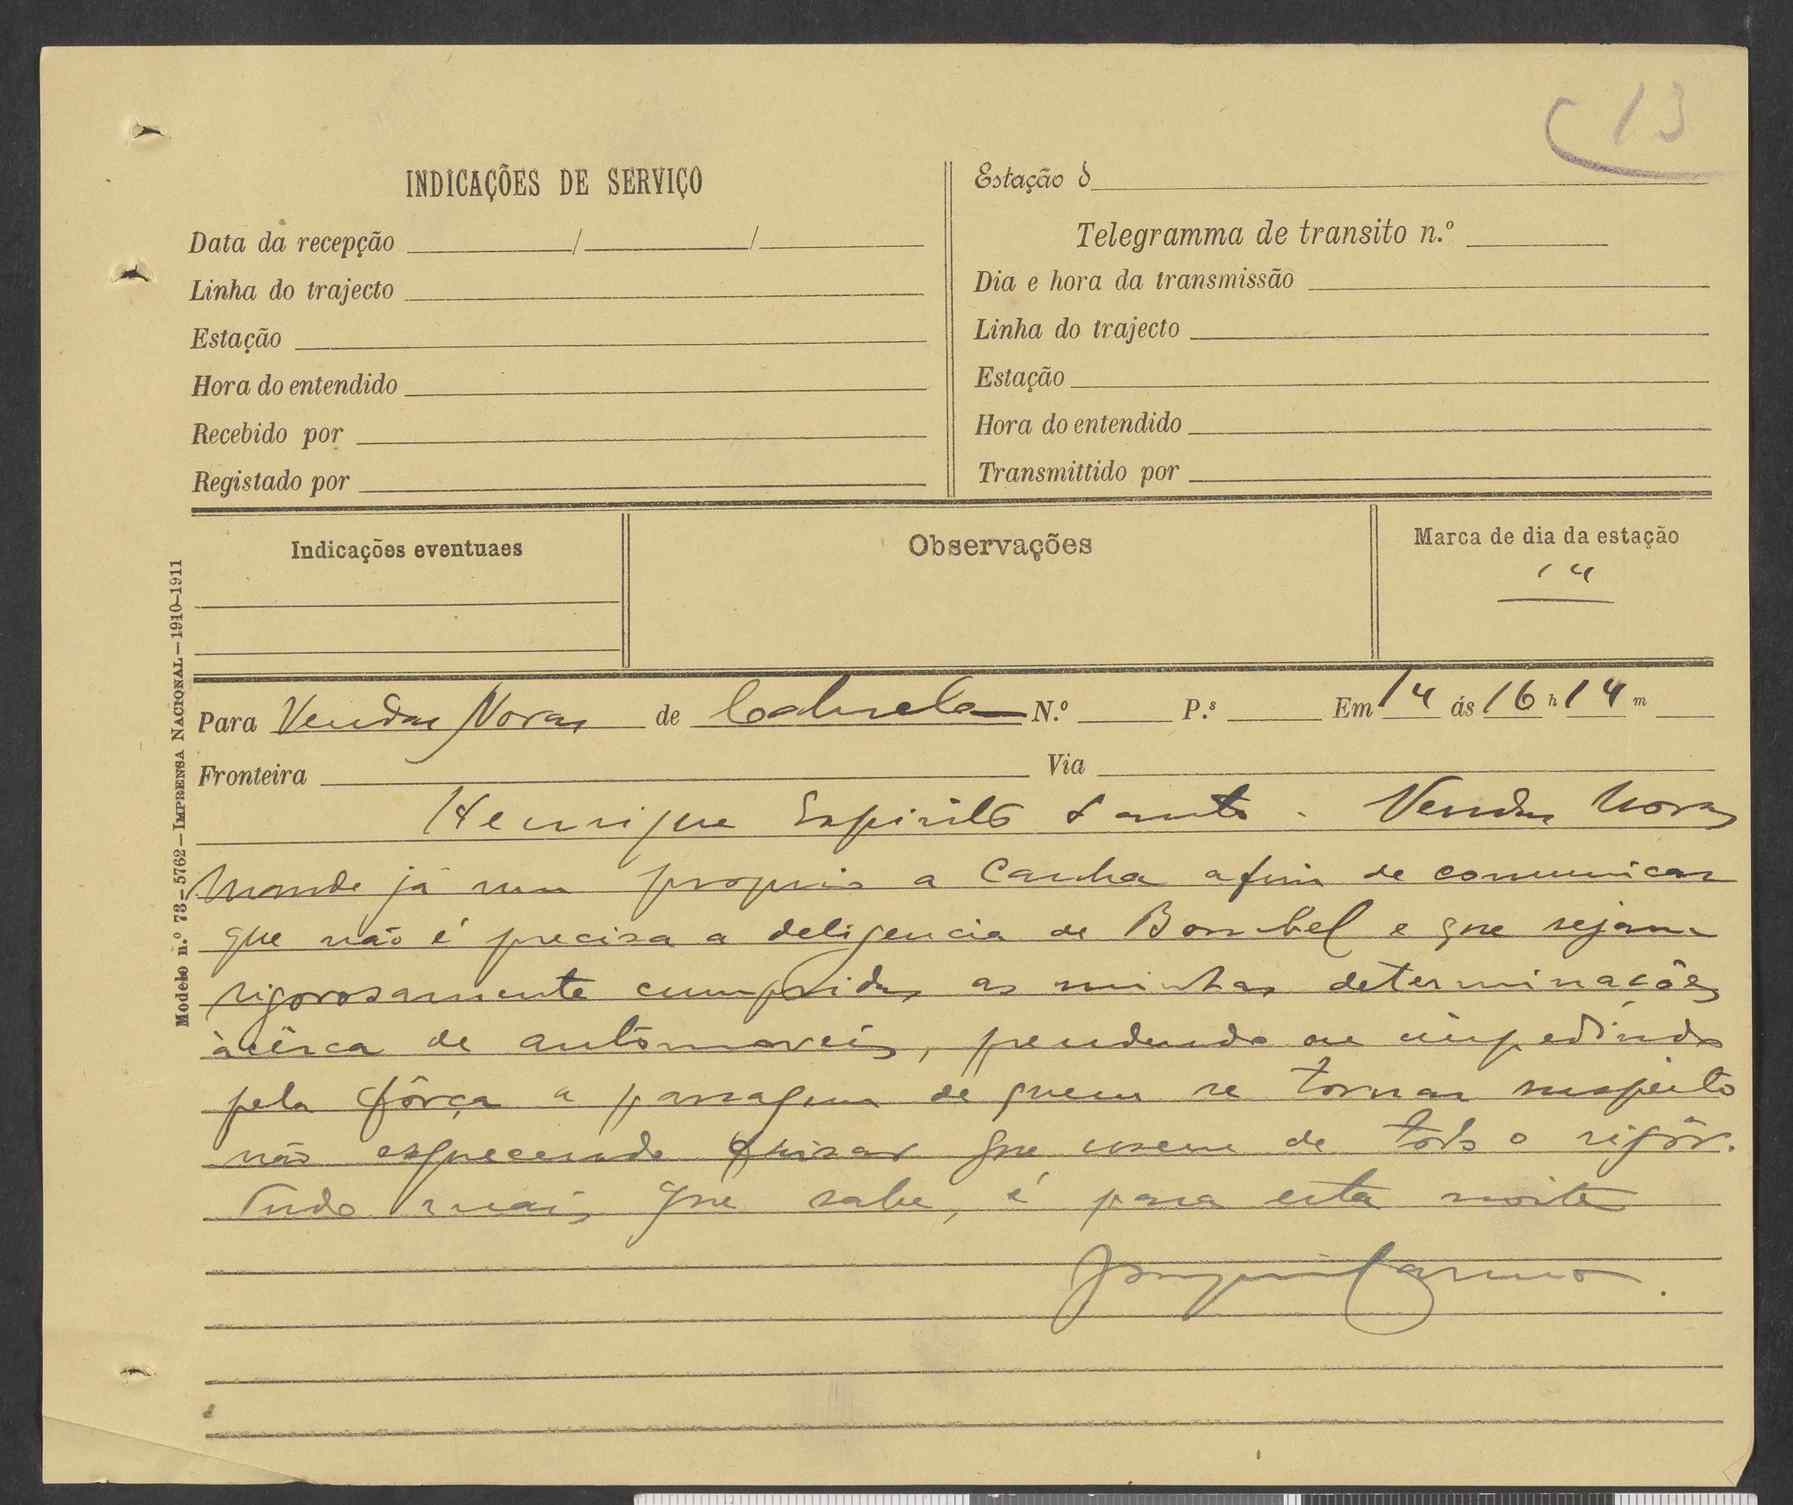 C 13
INDICAÇÕES DE SERVIÇO
Data da recepção / /
Linha do trajecto
Estação
Hora do entendido
Recebido por
Registado por
Estação d
Telegramma de transito n.º
Dia e hora da transmissão
Linha do trajecto
Estação
Hora do entendido
Transmittido por
Indicações eventuaes
Observações
Marca de dia da estação
14
Modelo n.º 73—5762—IMPRENSA NACIONAL—1910-1911
Para Vendas Novas de Cabrela N.º P.s Em 14 ás 16 h 14 m
Fronteira Via
Henrique Espirito Santo - Vendas Novas
Mande já um proprio a Canha afim de comunicar
que não é precisa a deligencia de Bombel e que sejam
rigorosamente cumpridas as minhas determinações
àcêrca de autòmoveis, prendendo ou impedindo
pela fôrça a passagem de quem se tornar suspeito
não esquecendo avisar que usem de todo o rigôr.
Tudo mais que sabe, é para esta noite
Joaquim Carmo